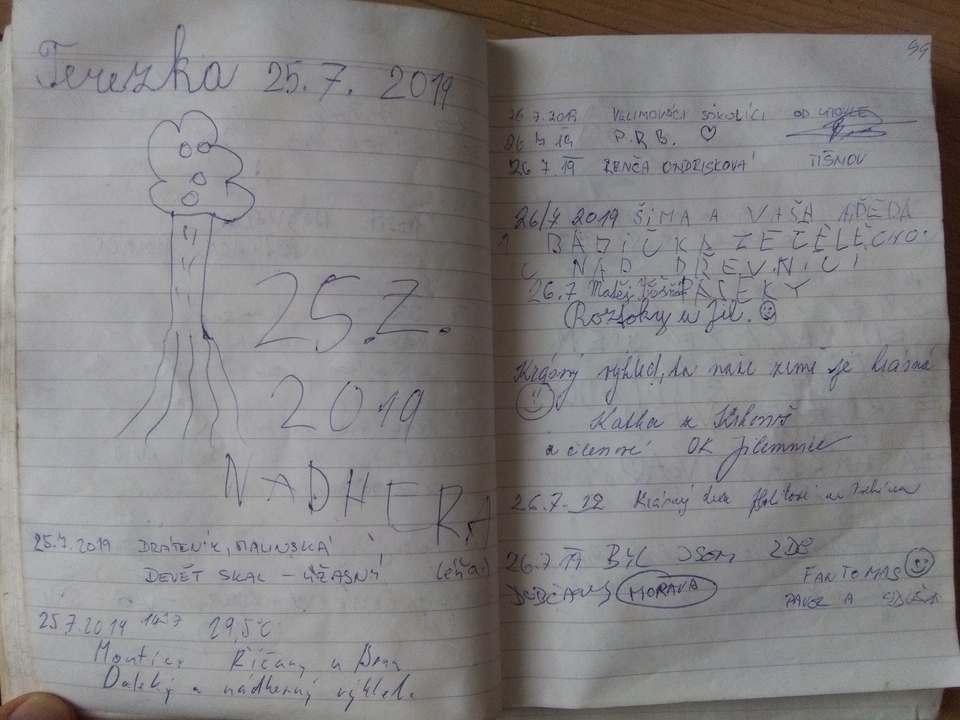 Terezka 25.7. 2019
25.7.
2019
NADHERA
25.7.2019 DRÁTENÍK, MALINSKÁ
DEVĚT SKAL - ÚŽASNÝ
25.7.2019 29,5°C
Říčany u Brna
Daleký a nádherný výhled.
99
26.7.2019 SOKOLÍCI OD
26.7.19 P.R.B. ♡
26.7.19 LENČA ONDRISKOVÁ TIŠNOV
26/7 2019 ŠIMA A VAŠA A DĚDA
A BABIČKA ZE ŽELECHO-
C NAD DŘEVNICÍ
26.7 Matěj PASEKY
Roztoky u Jil. ☺
Krásný výhled, ta naše země je krásná
☺
Katka z Krkonoš
a členové OK Jilemnice
26.7. Krásný den
26.7.19 BYL JSEM ZDE
FANTOMAS ☺
MORAVA
PAVEL A